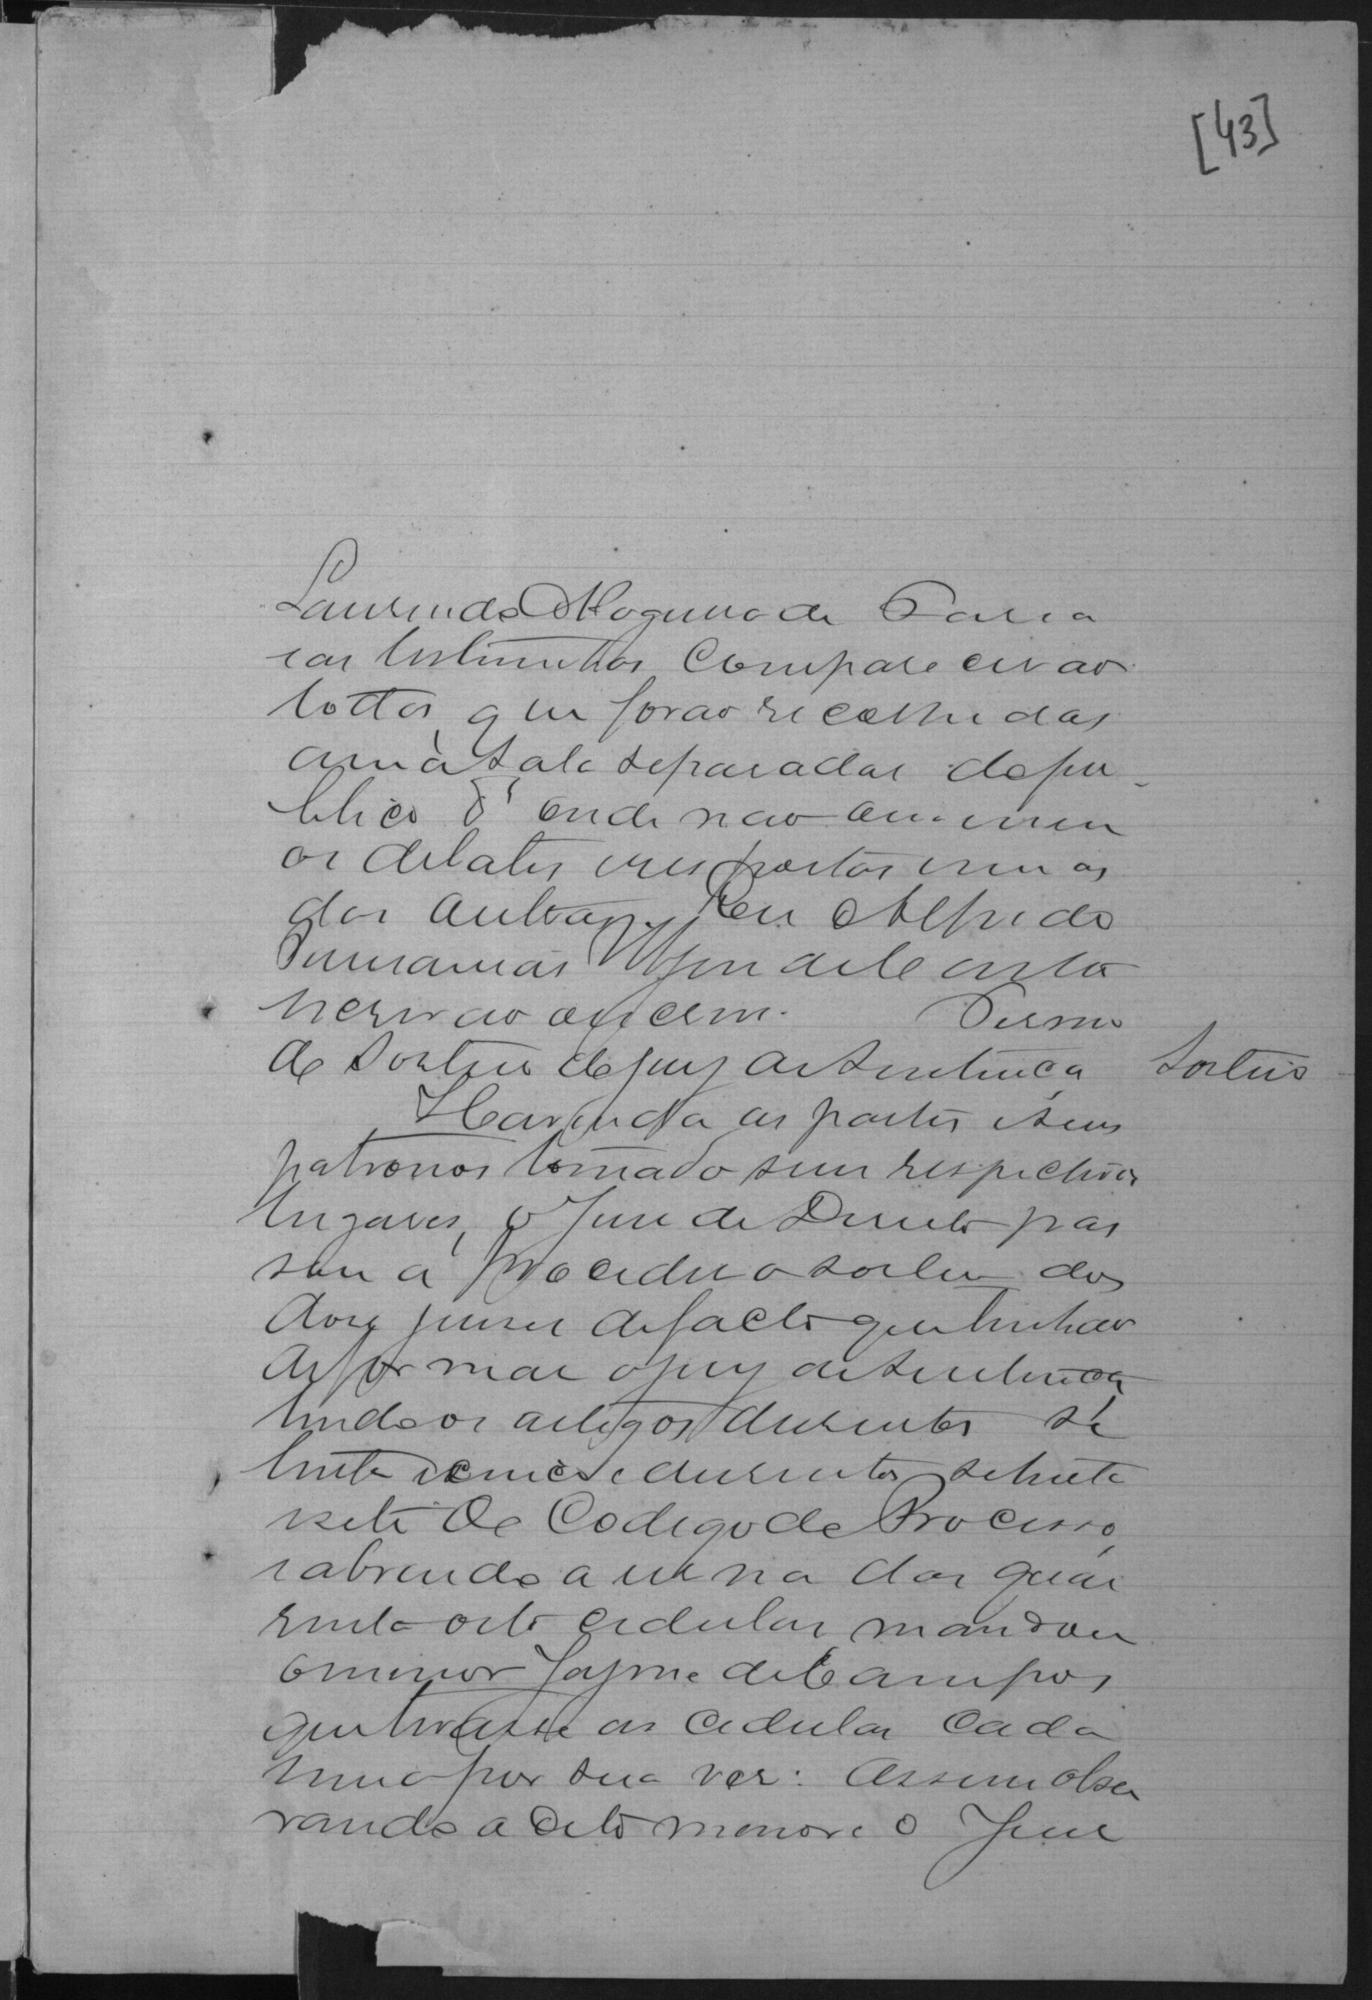 [43]
Laurindo Nogueira de Faria
eas testimunhas Comparecerão
todas, que forão recolhidas
auma Sala separadas do pu-
blico d'onde não ouvirem
os debates e respostas umas
das outras. Eu Alfredo
escrivão o escrevi. Termo
de Sorteio do jury de Sentença Sorteio
Havendo as partes e seus
patronos tomado seus respectivos
lugares, o Juiz de Direito pas
sou a proceder o sorteio dos
doze juizes de facto que tinhão
de formar o jury de Sentença
lindo os artigos duzentos se
tenta e cinco e duzentos setenta
e sete do Codigo do Processo,
e abrindo a urna das quar
enta oito cedulas, mandou
o menor Jayme de Campos
que tirasse as cedulas cada
uma por sua vez: assim obser
vando o dito menor e o Juiz